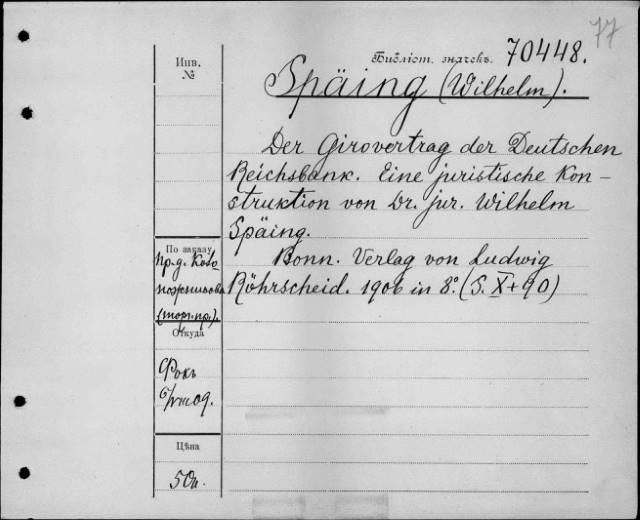 77
Инв.
№
Библіот. значекъ. 70448.
Späing (Wilhelm).
Der Girovertrag der Deutschen
Reichsbank. Eine juristische Kon-
struktion von Dr. jur. Wilhelm
Späing.
Bonn. Verlag von Ludwig
Röhrscheid. 1906 in 8°. (S. X+90)
По заказу
пр.д.
(торг. пр.).
Откуда
Фокъ
6/VIII 09.
Цѣна